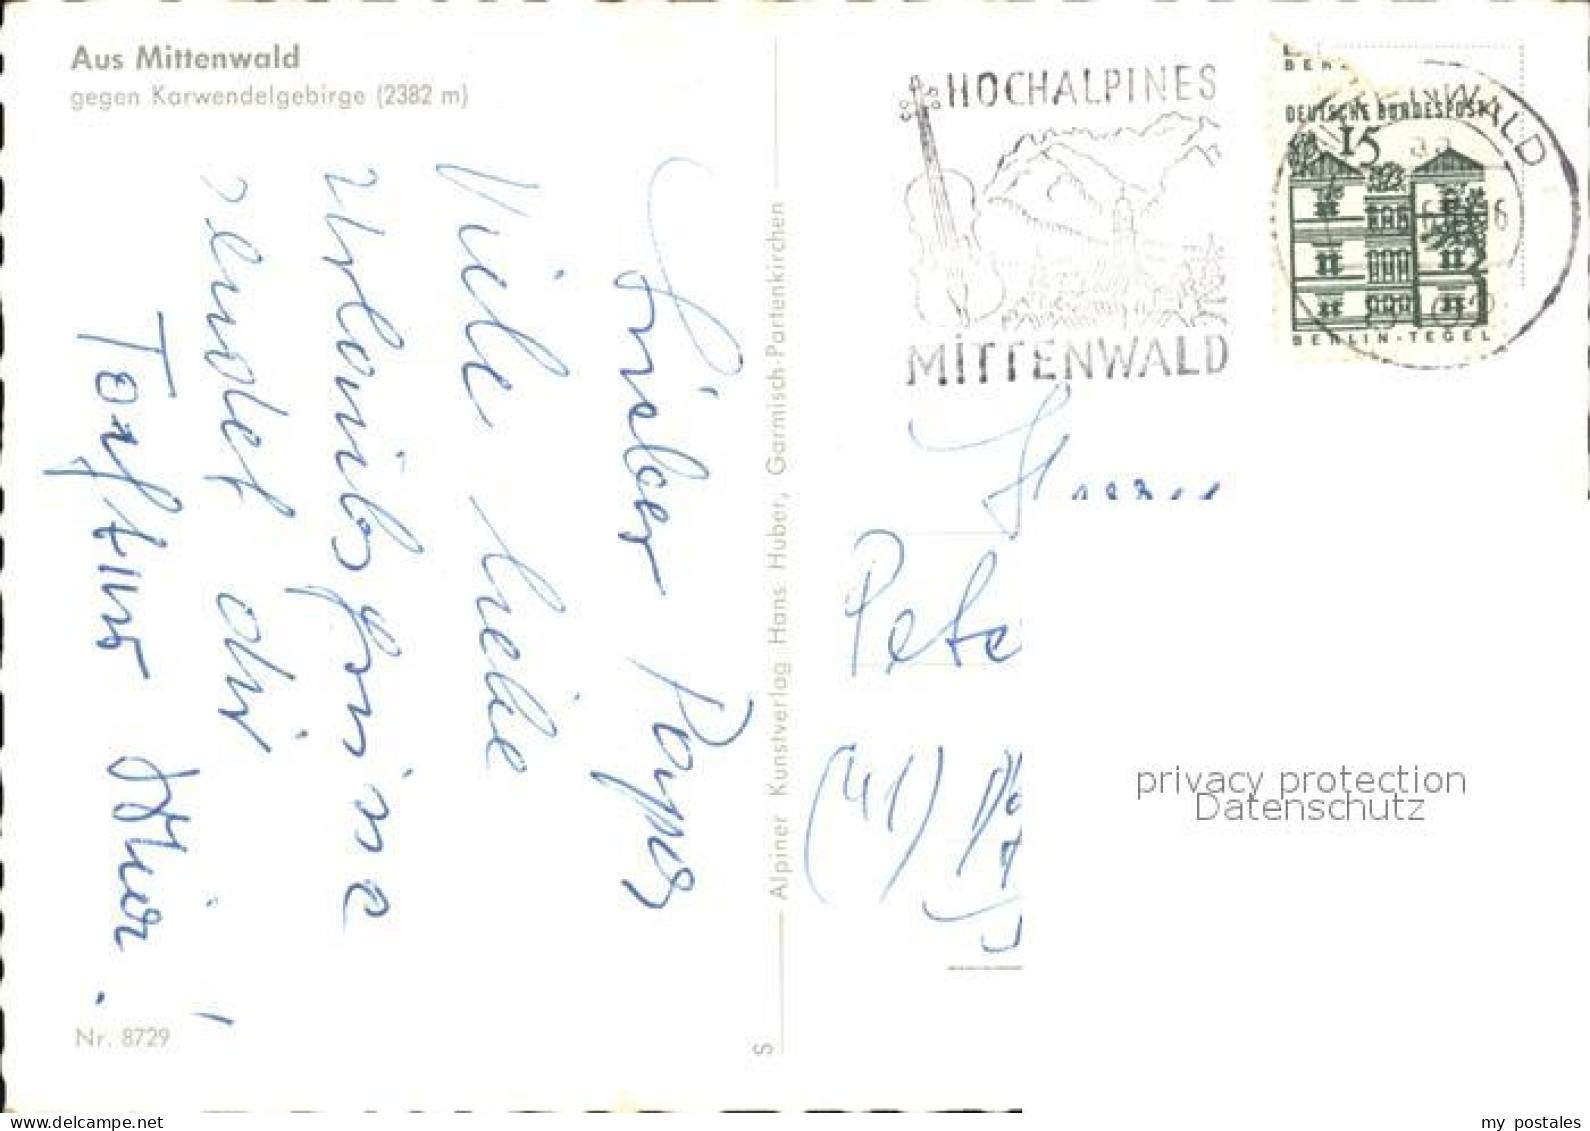 Aus Mittenwald
gegen Karwendelgebirge (2382 m)
Lieber Papa
Viele liebe
Urlaubsgrüsse
sendet dir
Nr. 8729
Alpiner Kunstverlag Hans Huber, Garmisch-Partenkirchen
S
HOCHALPINES
MITTENWALD
DEUTSCHE BUNDESPOST
15
BERLIN-TEGEL
MITTENWALD
Herrn
Pete
(41)
privacy protection
Datenschutz
my postales